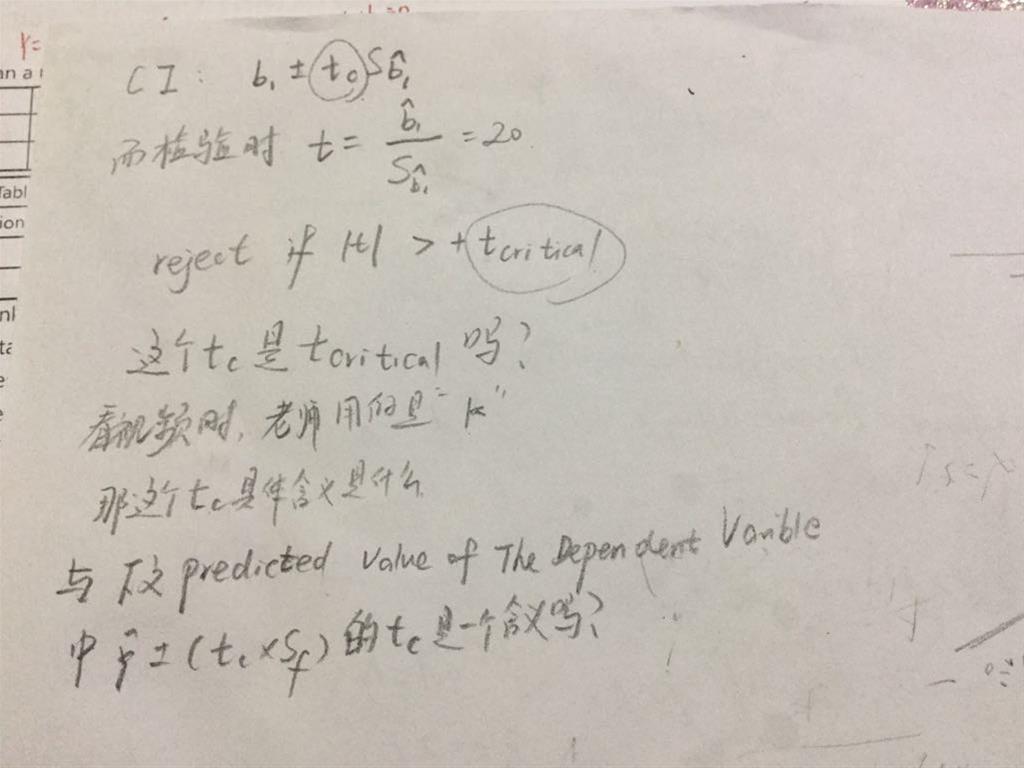 γ=
an a
Tabl
ion
nl
ta
e
e
CI: b₁ ± t_c S_b̂₁
而检验时 t = b̂₁ / S_b̂₁ = 20
reject if |t| > + t_critical
这个 t_c 是 t_critical 吗?
看视频时, 老师用的是 "k"
那这个 t_c 具体含义是什么
与下文 predicted value of The Dependent Varible
中 ŷ ± (t_c × S_f) 的 t_c 是一个含义吗?